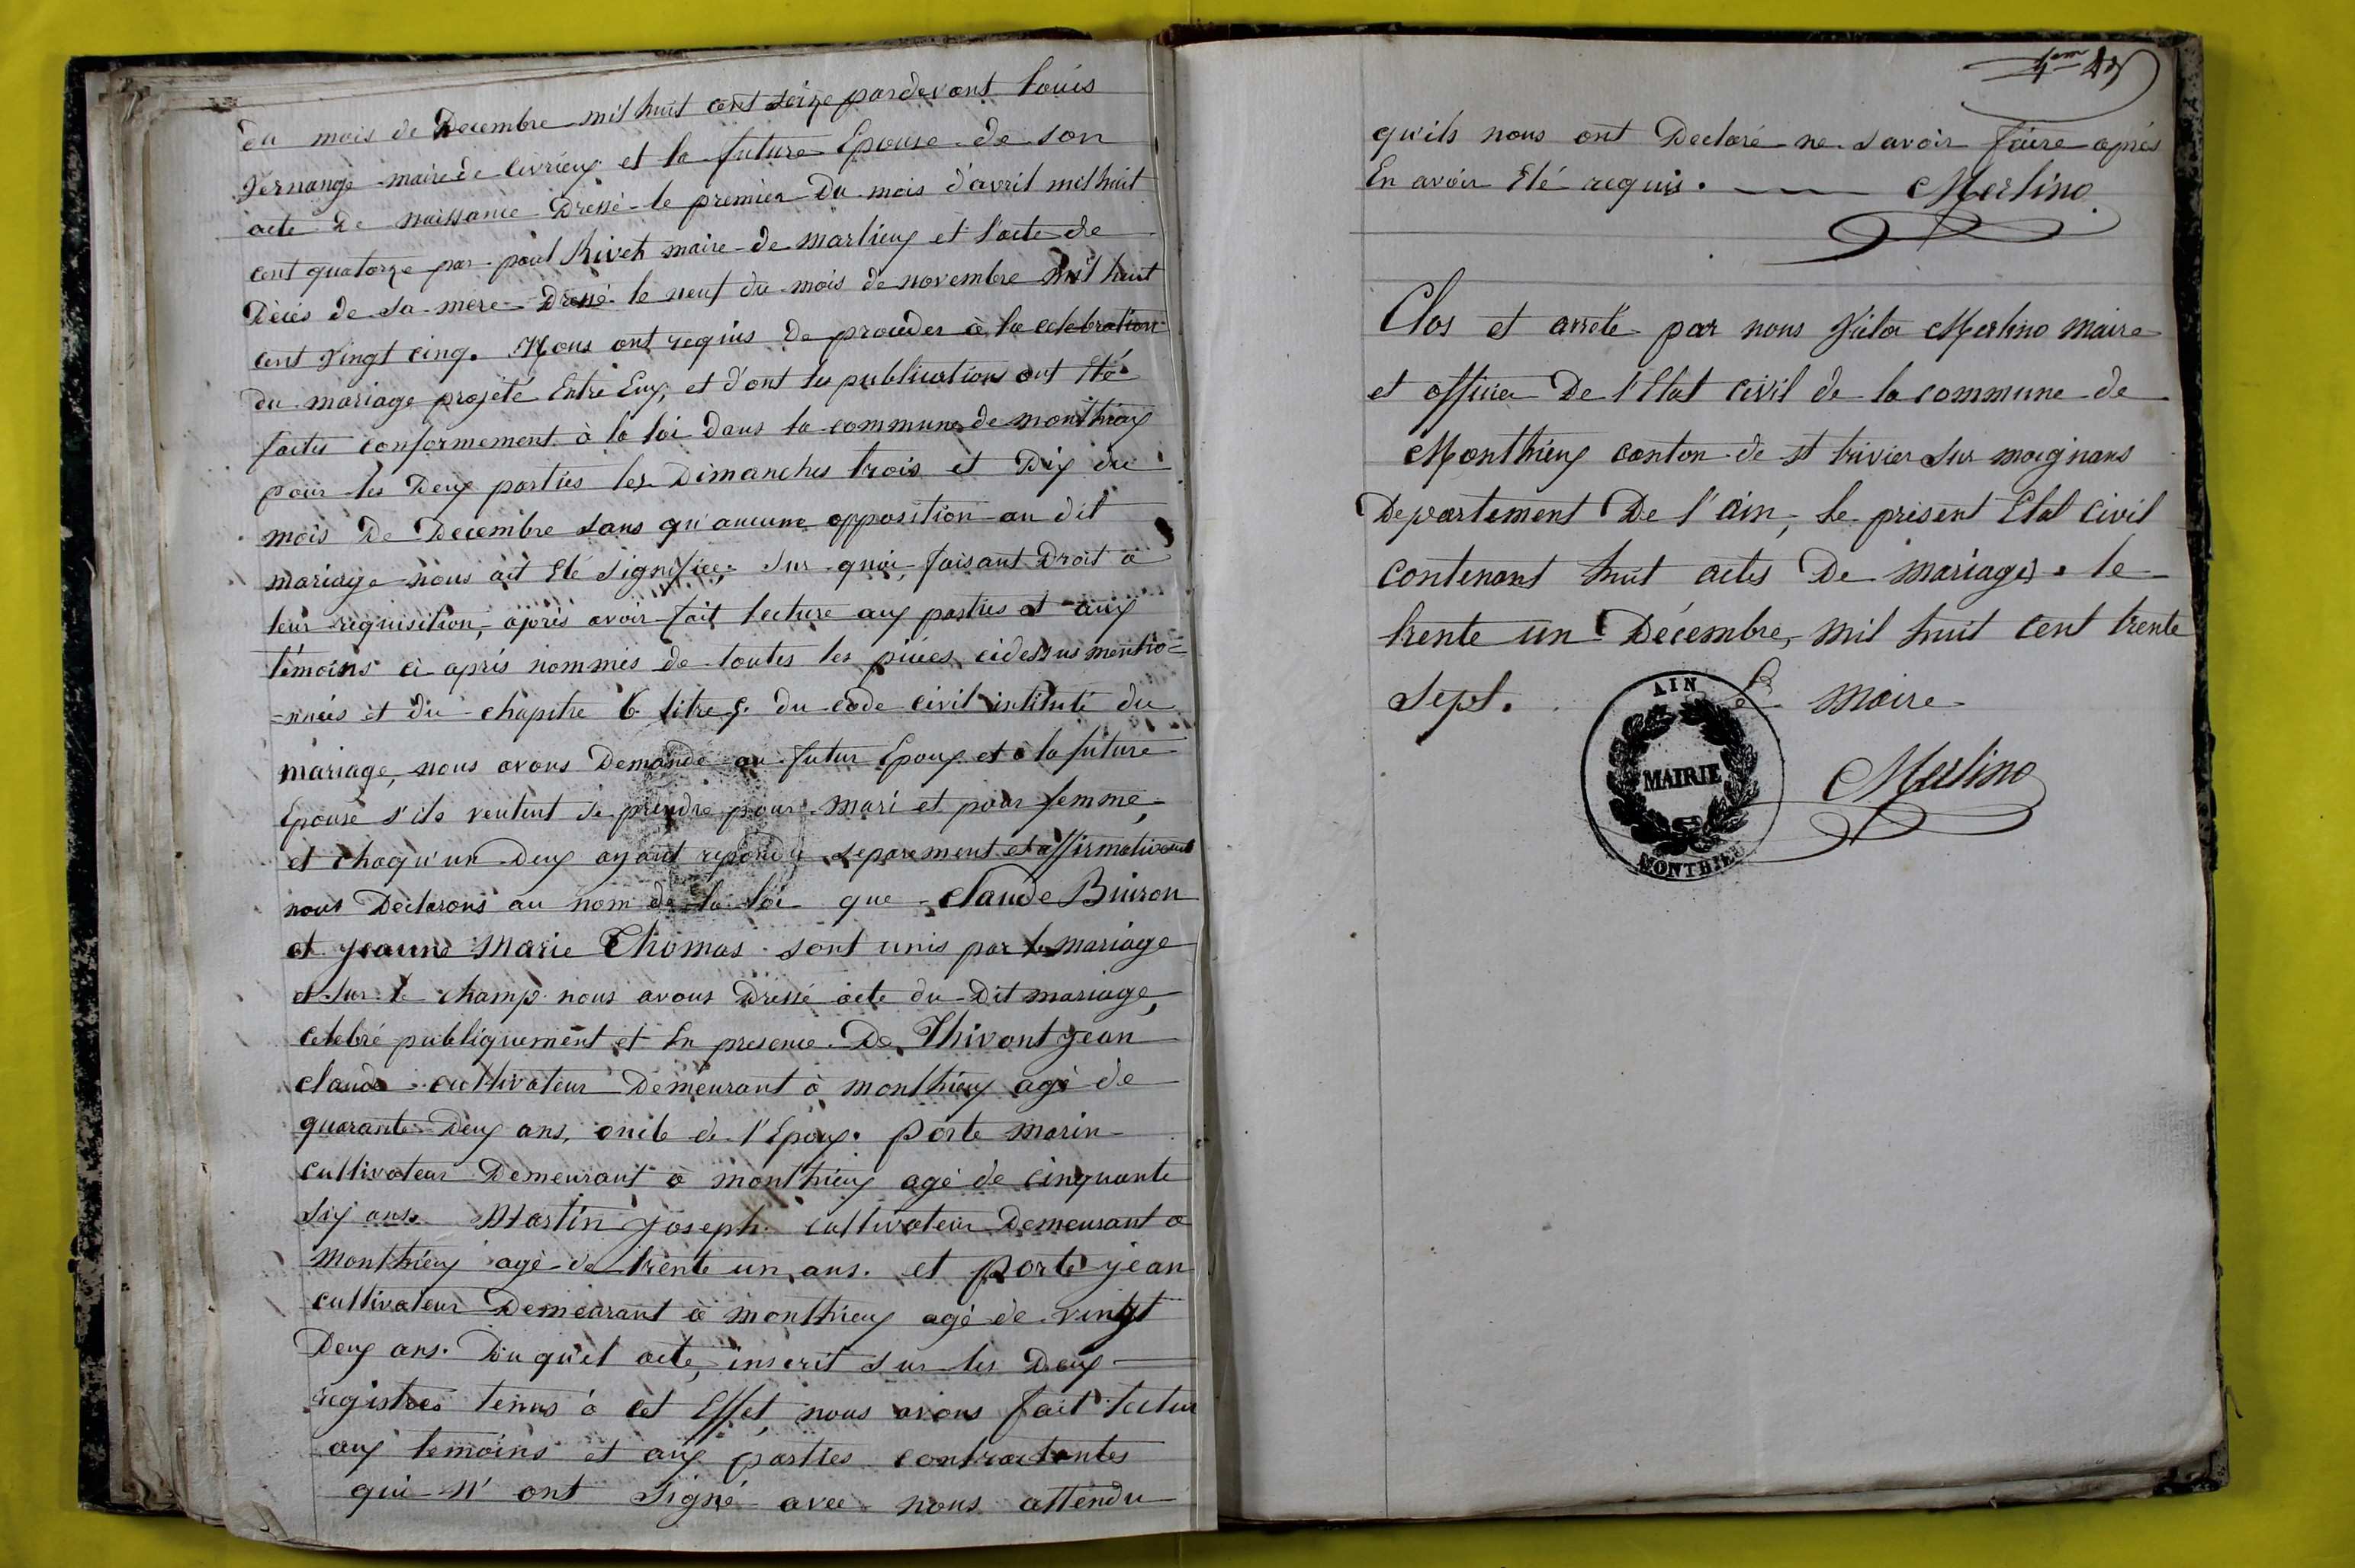 du mois de Decembre mil huit cent seize pardevant Louis
Vernange maire de Civrieux et la future Epouse de son
acte de naissance Dressé le premier Du mois d'avril mil huit
cent quatorze par paul Rivet maire de marlieux et l'acte de
Décés de sa mere Dressé le neuf du mois de novembre mil huit
cent Vingt cinq. Nous ont requis de proceder à la celebration
du mariage projeté Entre Eux, et d'ont les publications ont Eté
faites conformement à la loi Dans la commune de monthieux
pour les Deux parties les Dimanches trois et Dix du
mois De Decembre sans qu'aucune opposition au dit
mariage nous ait Eté signifiée; sur quoi, faisant Droit à
leur requisition, aprés avoir fait lecture aux parties et aux
témoins ci-aprés nommés de toutes les piéces cidessus mentio=
=nnées et du chapitre 6 titre 5. du code civil intitulé du
mariage, nous avons Demandé au futur Epoux et à la future
Epouse s'ils veulent se prendre pour mari et pour femme,
et chaqu'un Deux ayant repondu separement et affirmativement
nous Declarons au nom de la loi que Claude Buiron
et jeanne Marie Thomas sont unis par le mariage
et sur le champ nous avons Dressé acte du Dit mariage,
celebré publiquement et En presence De Thivont jean
claude cultivateur Demeurant à monthieux agé de
quarante Deux ans, oncle de l'Epoux. Porte marin
cultivateur Demeurant à monthieux agé de cinquante
six ans. Martin joseph cultivateur Demeurant à
Monthieux agé de trente un ans. et Porte jean
cultivateur Demeurant à monthieux agé de vingt
Deux ans. Du qu'el acte, inscrit sur les Deux
registres tenus à cet Effet nous avons fait lecture
aux temoins et aux parties contractantes
qui n'ont signé avec nous attendu
qu'ils nous ont Declaré ne savoir faire aprés
En avoir Eté requis. Merlino
Clos et arreté par nous Victor Merlino maire
et officier De l'Etat civil de la commune de
Monthieux canton de st trivier sur moignans
Departement De l'Ain, le present Etat civil
contenant huit actes De mariages. le
trente un Décembre, mil huit cent trente
sept. Le Maire
AIN
MAIRIE
MONTHIEU
Merlino